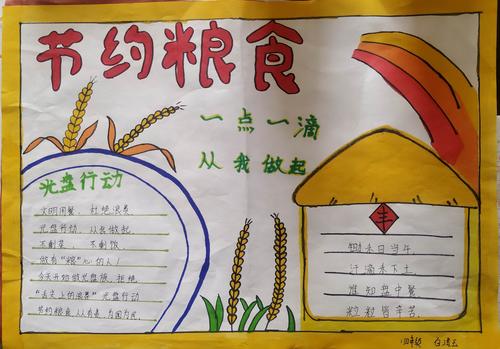 节约粮食
一点一滴
从我做起
光盘行动
文明用餐，杜绝浪费
光盘行动，从我做起
不剩菜，不剩饭
做有“粮”心的人！
今天开始做光盘族，拒绝
“舌尖上的浪费”光盘行动
节约粮食 人人有责 为国为民
丰
锄禾日当午，
汗滴禾下土
谁知盘中餐
粒粒皆辛苦。
四年级